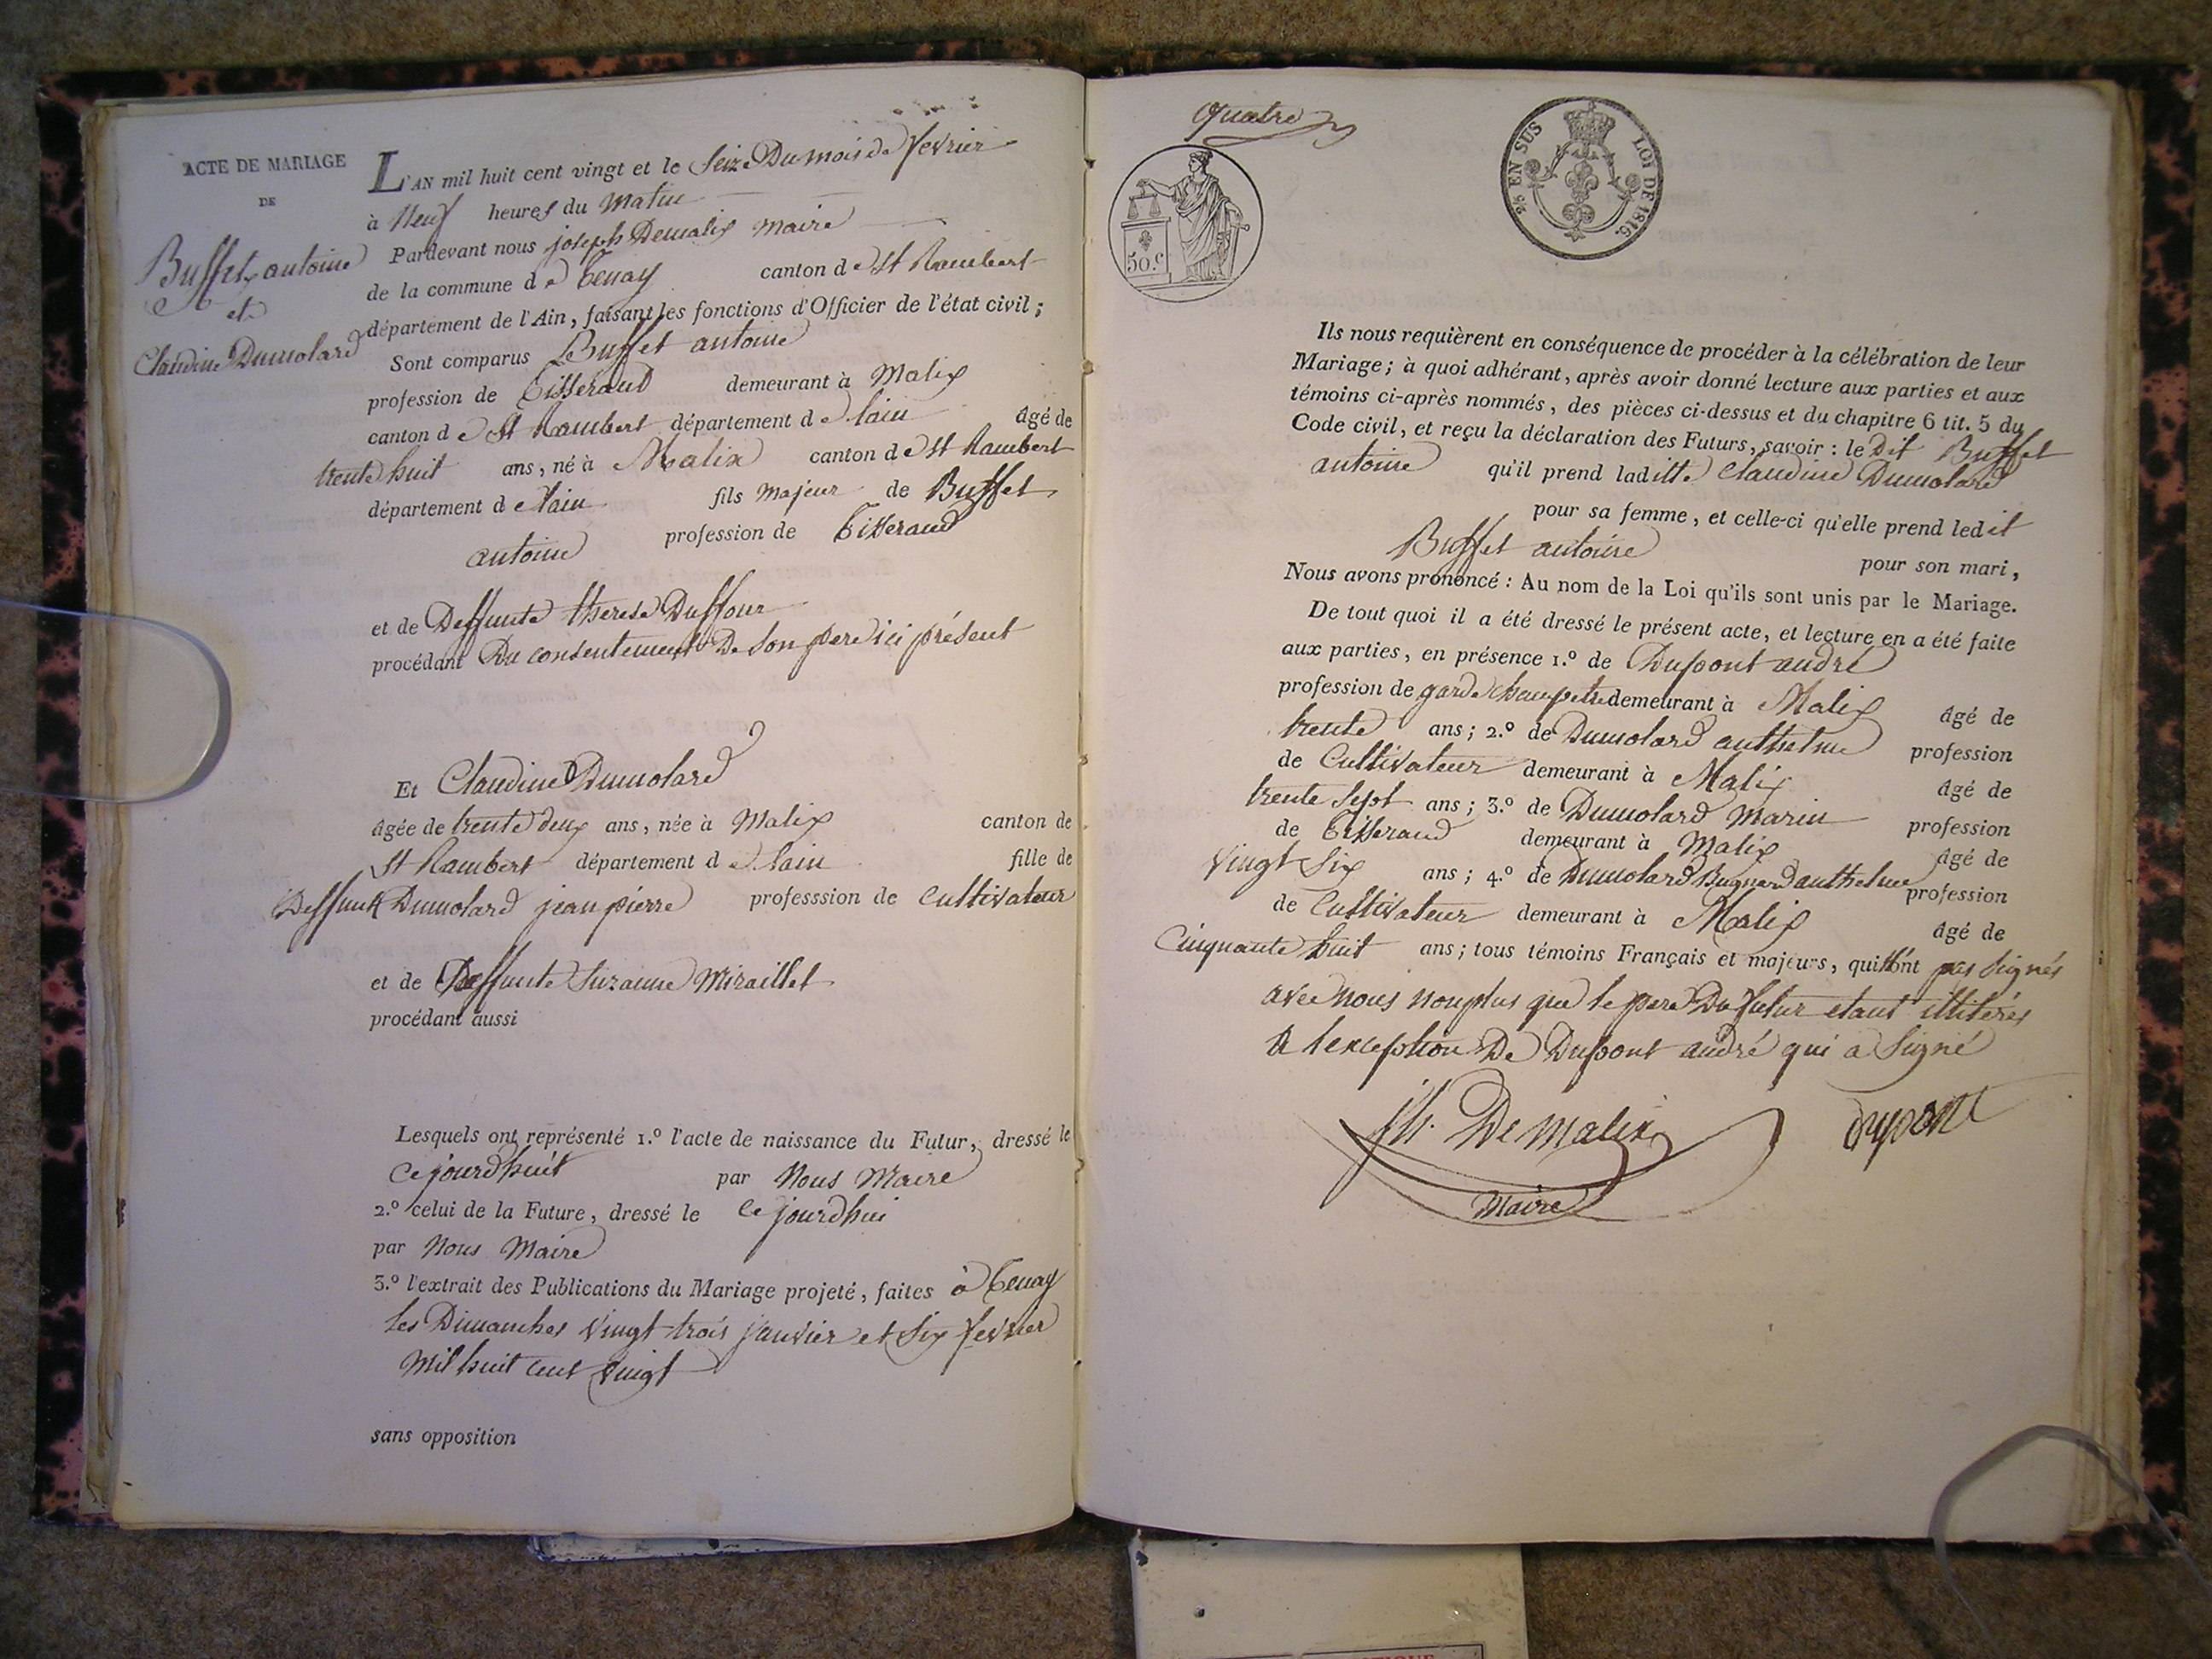 ACTE DE MARIAGE
DE
Buffet antoine
et
Claudine Dumolard
L'AN mil huit cent vingt et le Seize Du mois de fevrier
à Neuf heures du Matin
Pardevant nous joseph Demalix maire
de la commune de Tenay canton de St Rambert
département de l'Ain, faisant les fonctions d'Officier de l'état civil;
Sont comparus Le Buffet antoine
profession de Tisserand demeurant à Malix
canton de St Rambert département de lain âgé de
trente huit ans, né à Malix canton de St Rambert
département de lain fils Majeur de Buffet
antoine profession de Tisserand
et de Deffunte therese Duffour
procédant Du consentement De Son pere ici présent
Et Claudine Dumolard
âgée de trente deux ans, née à Malix canton de
St Rambert département de lain fille de
Deffunt Dumolard jean pierre professsion de Cultivateur
et de Deffunte Suzanne Miraillet
procédant aussi
Lesquels ont représenté 1.º l'acte de naissance du Futur, dressé le
Cejourdhuit par Nous Maire
2.º celui de la Future, dressé le Cejourdhui
par Nous Maire
3.º l'extrait des Publications du Mariage projeté, faites à Tenay
Les Dimanches Vingt trois janvier et Six fevrier
Mil huit cent Vingt
sans opposition
Quatre
50.c
25 EN SUS LOI DE 1816.
Ils nous requièrent en conséquence de procéder à la célébration de leur
Mariage; à quoi adhérant, après avoir donné lecture aux parties et aux
témoins ci-après nommés, des pièces ci-dessus et du chapitre 6 tit. 5 du
Code civil, et reçu la déclaration des Futurs, savoir: le Dit Buffet
antoine qu'il prend laditte Claudine Dumolard
pour sa femme, et celle-ci qu'elle prend ledit
Buffet antoine pour son mari,
Nous avons prononcé: Au nom de la Loi qu'ils sont unis par le Mariage.
De tout quoi il a été dressé le présent acte, et lecture en a été faite
aux parties, en présence 1.º de Dupont andré
profession de garde champetre demeurant à Malix âgé de
trente ans; 2.º de Dumolard anthelme profession
de Cultivateur demeurant à Malix âgé de
trente Sept ans; 3.º de Dumolard Marin profession
de Tisserand demeurant à Malix âgé de
Vingt Six ans; 4.º de Dumolard Bugnard anthelme profession
de Cultivateur demeurant à Malix âgé de
Cinquante huit ans; tous témoins Français et majeurs, qui n'ont pas Signés
avec nous non plus que le pere Du futur etant illitérés
A lexception De Dupont andré qui a Signé
jh. Demalix dupont
Maire